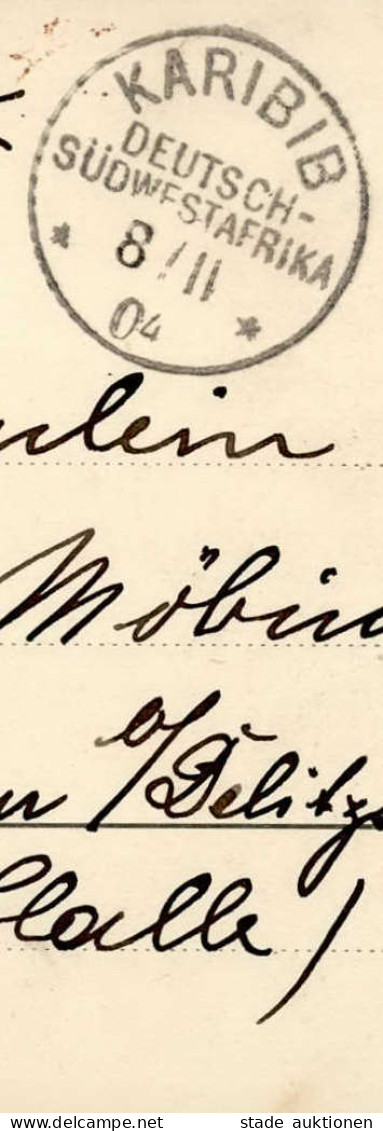 KARIBIB
DEUTSCH-
SÜDWESTAFRIKA
8/11
04
ulein
Möbiu
b/Delitzs
Halle)
delcampe.net
stade auktionen